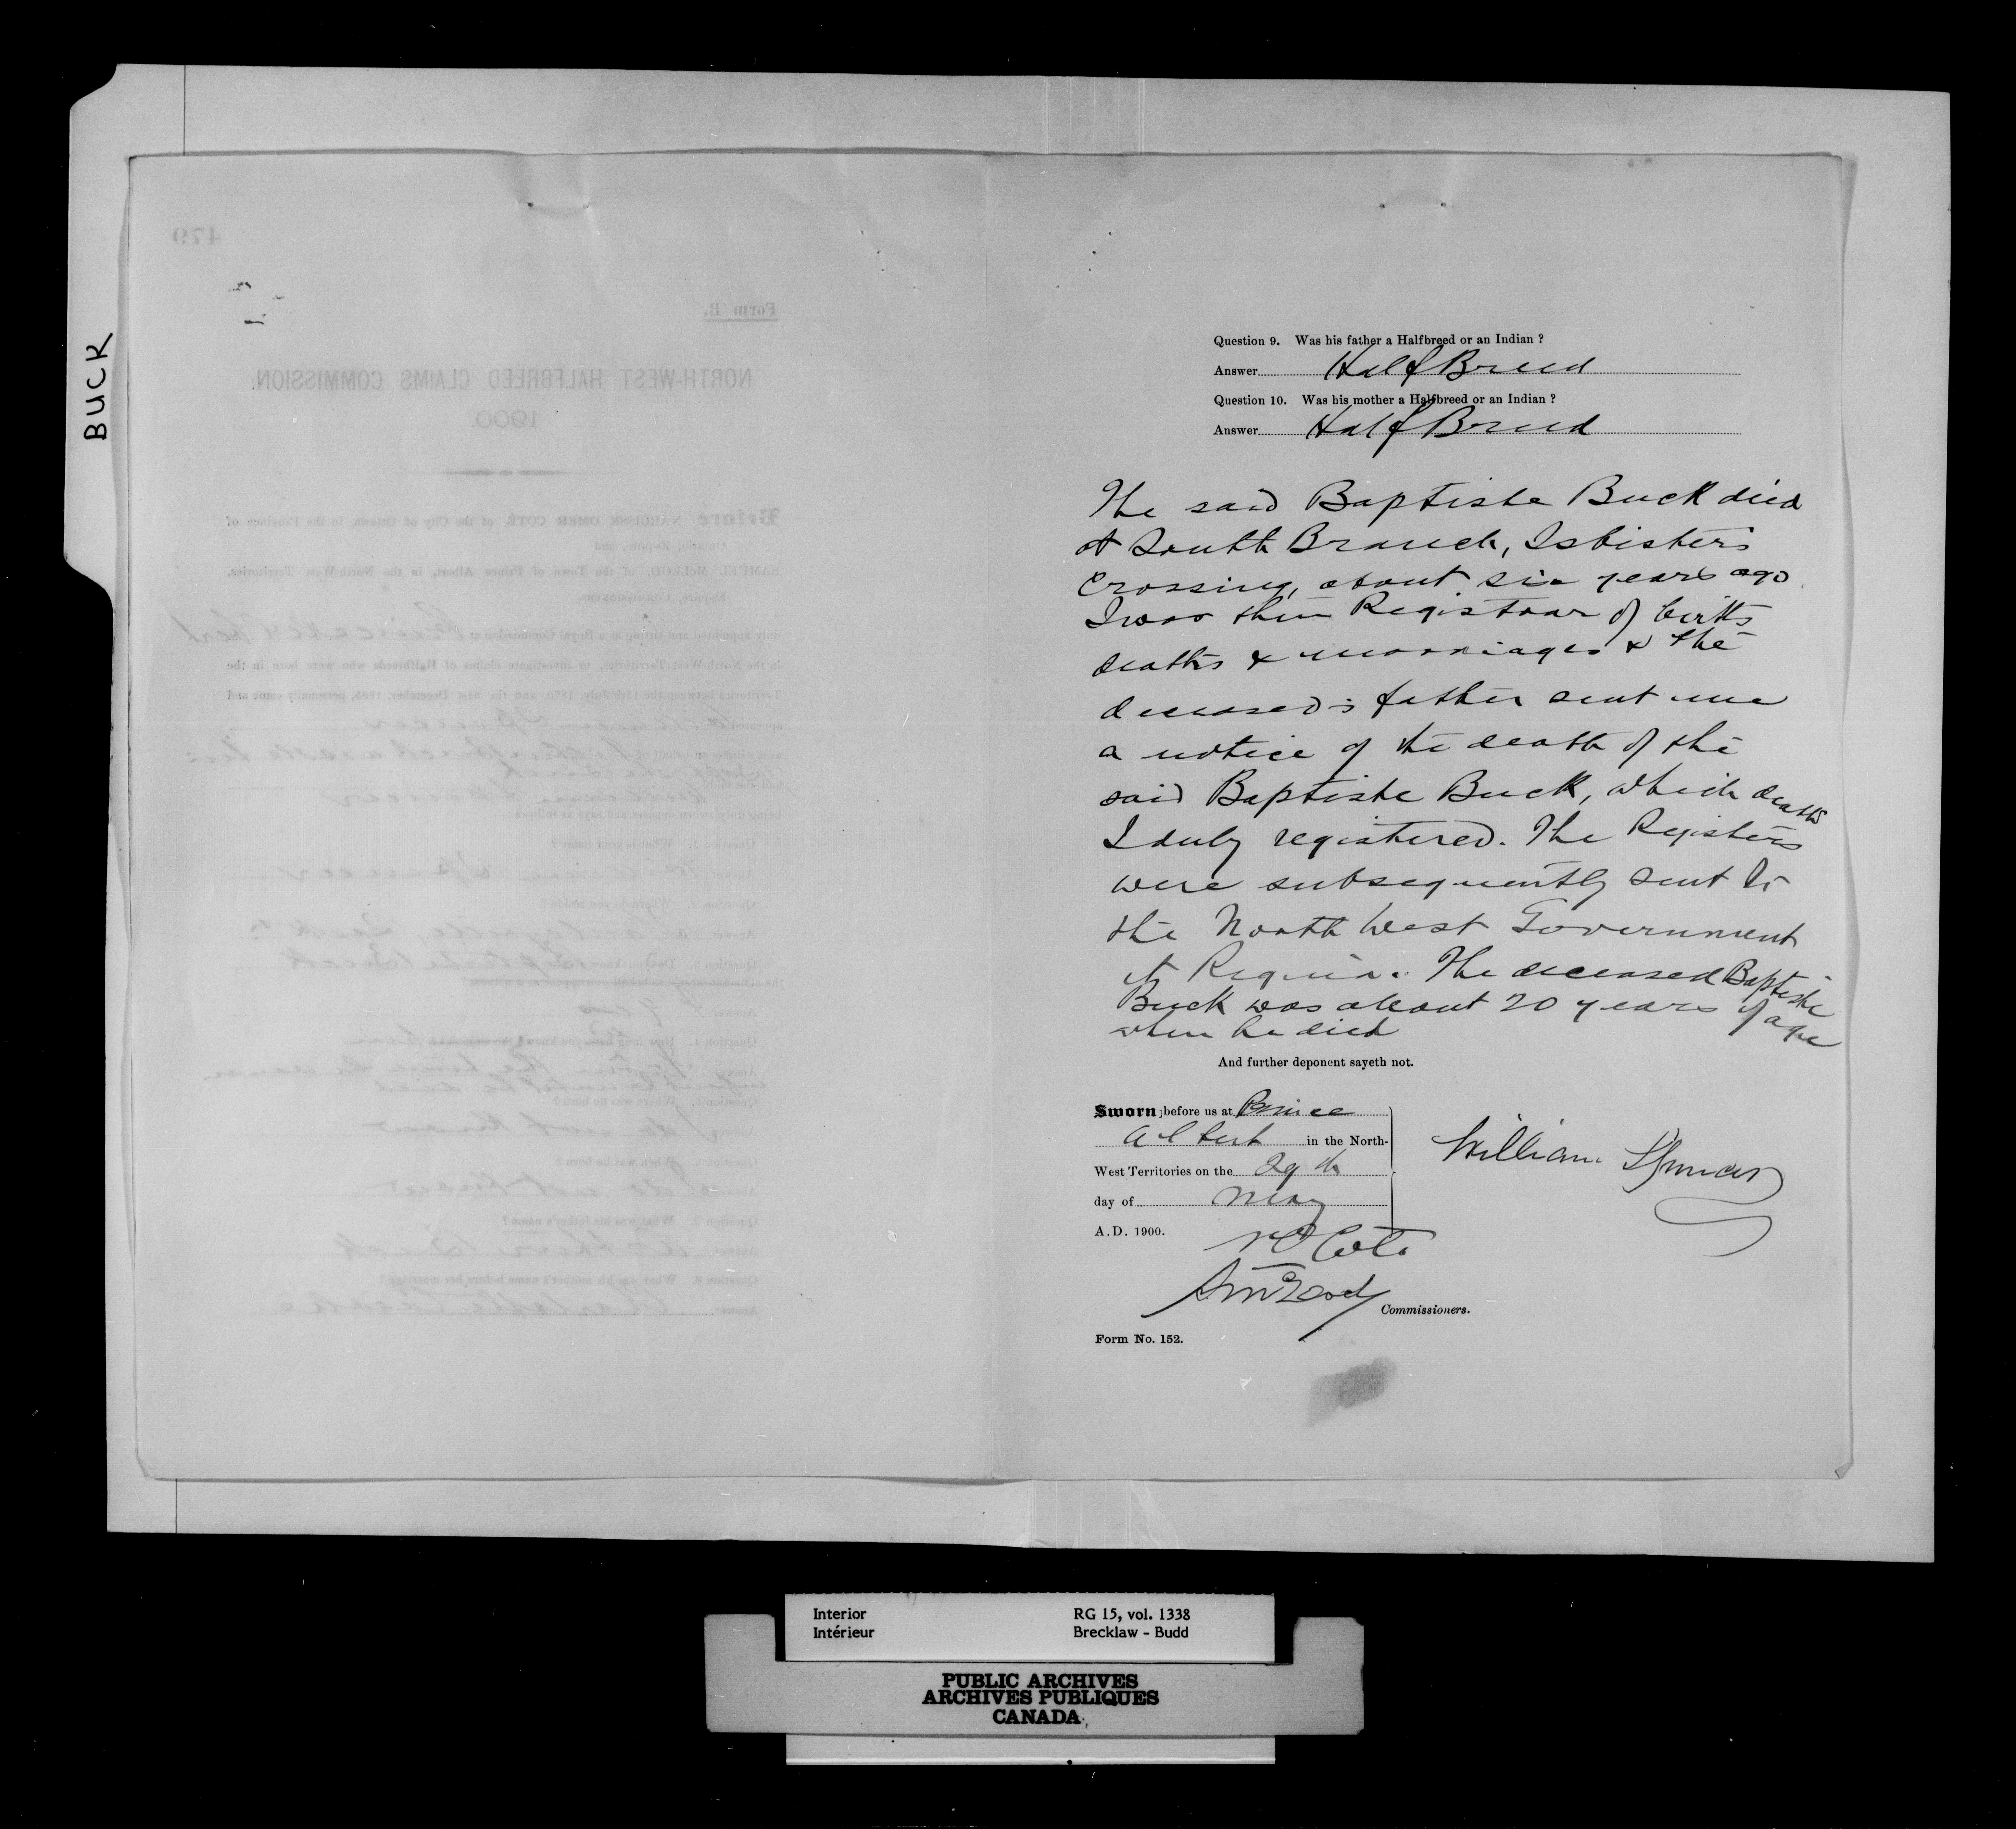 BUCK
479
Form B.
NORTH-WEST HALFBREED CLAIMS COMMISSION.
1900.
Before NARCISSE OMER COTÉ, of the City of Ottawa, in the Province of
Ontario, Esquire, and
SAMUEL McLEOD, of the Town of Prince Albert, in the North-West Territories,
Esquire, Commissioners,
duly appointed and sitting as a Royal Commission at Prince Albert
in the North-West Territories, to investigate claims of Halfbreeds who were born in the
Territories between the 15th July, 1870, and the 31st December, 1885, personally came and
appeared William Spencer
being duly sworn deposes and says as follows:—
Question 1. What is your name?
Answer William Spencer
Question 2. Where do you reside?
Answer
Question 3. Do you know Baptiste Buck
Answer Yes
Question 4. How long have you known
Question 5. Where was he born?
Answer I do not know
Question 6. When was he born?
Answer I do not know
Question 7. What was his father's name?
Answer Buck
Question 8. What was his mother's name before her marriage?
Answer Charlotte
Question 9. Was his father a Halfbreed or an Indian ?
Answer Half Breed
Question 10. Was his mother a Halfbreed or an Indian ?
Answer Half Breed
The said Baptiste Buck died
at South Branch, Isbister's
Crossing, about six years ago
I was then Registrar of births
deaths & marriages & the
deceased's father sent me
a notice of the death of the
said Baptiste Buck, which death
I duly registered. The Registers
were subsequently sent to
the North West Government
at Regina. The deceased Baptiste
Buck was about 20 years of age
when he died
And further deponent sayeth not.
Sworn before us at Prince
Albert in the North-
West Territories on the 29th
day of May
A.D. 1900.
William Spencer
N O Coté
S McLeod
Commissioners.
Form No. 152.
Interior
Intérieur
RG 15, vol. 1338
Brecklaw - Budd
PUBLIC ARCHIVES
ARCHIVES PUBLIQUES
CANADA